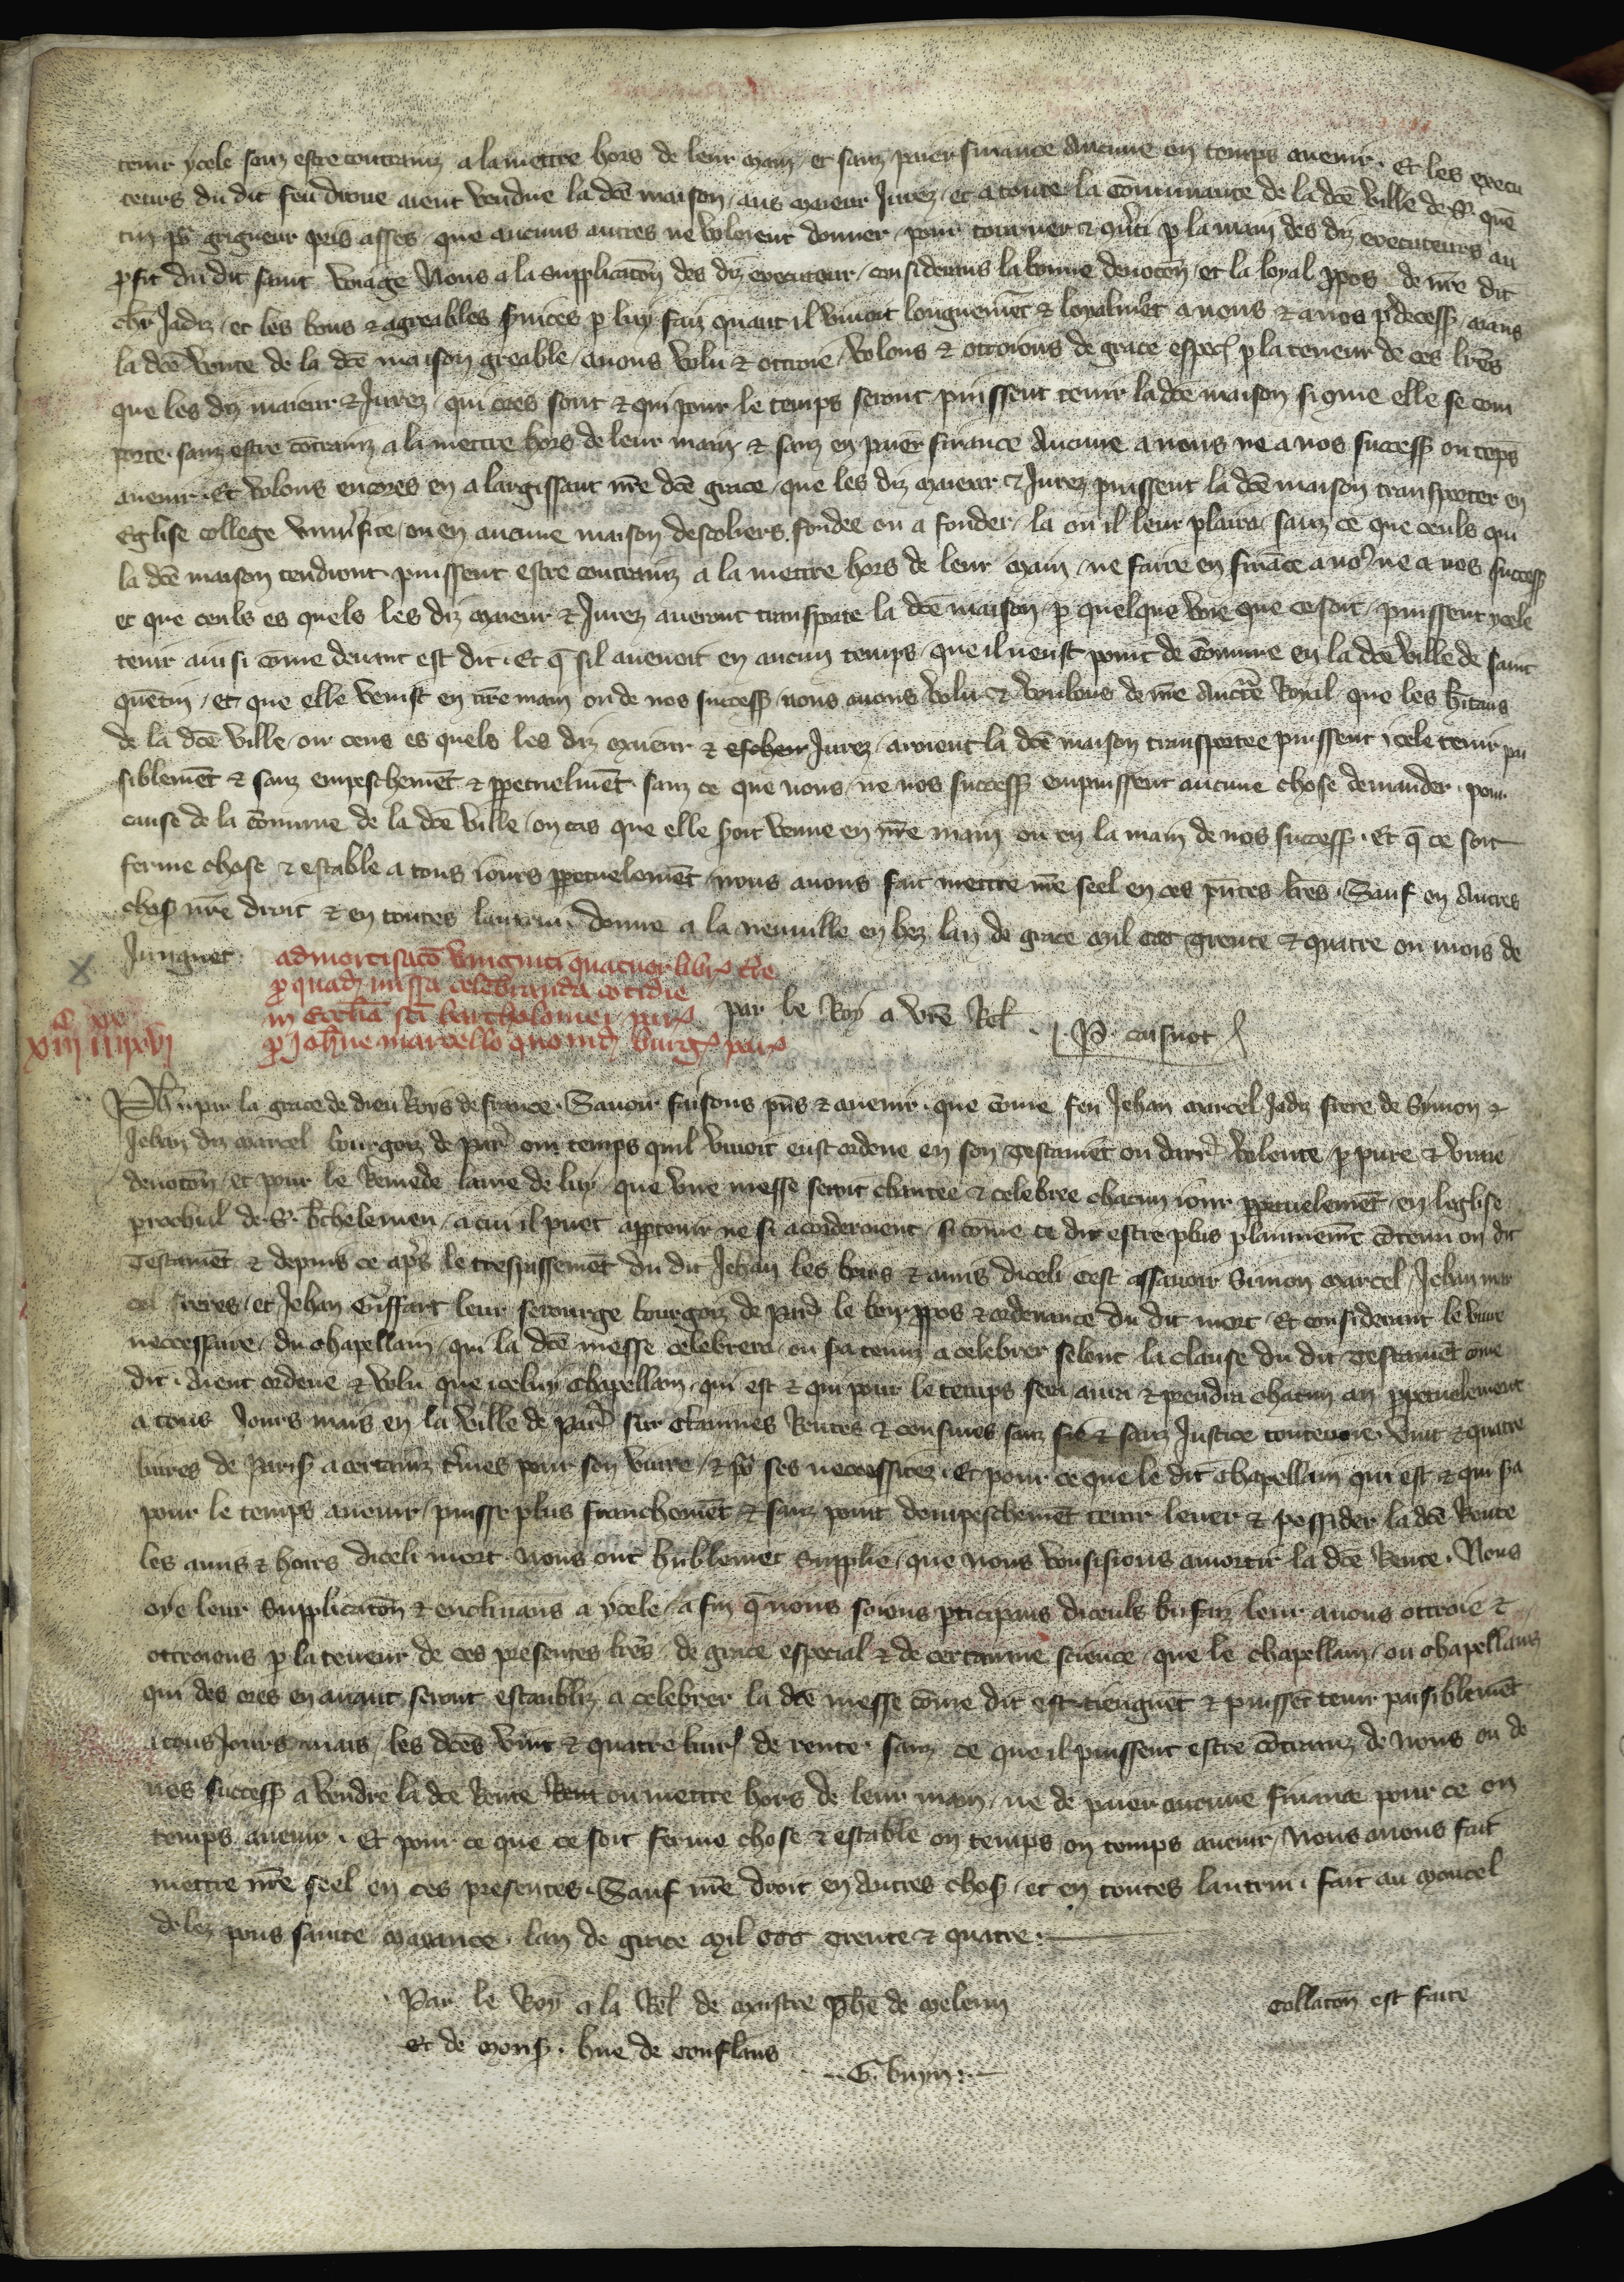 tenir ycele sanz estre contrainz a la mettre hors de leur main, et sanz paier finance aucune en temps avenir. Et les execu
teurs du dit feu divue aient vendue la dc̄e maison, aus maieur Jurez, et a toute la cōmunaute de la dc̄e ville de S. quē
tin pͬ grigneur pris asses, que aucuns autres ne voloient donner, pour tourner & cōverti p la main des diz executeurs au
ꝓfit du dit saint voiage Nous a la supplicacōn des diz executeur, considerans la bonne devocōn, et la loyal ꝓpos de nr̄e dit
chr̄ Jadiz, et les bons & agreables svices p luy faiz quant il vivoit longuemēt & loyalmēt a nous & a nos p̄decess, aians
la dc̄e vente de la dc̄e maison greable, avons volu & ottroie, volons & ottroions de grace espec̄ p la teneur de ces lr̄es
que les diz maieur & Jurez, qui ores sont & qui pour le temps seront, puissent tenir la dc̄e maison si cōme elle se com
porte, sanz estre cōtrainz a la mettre hors de leur main & sanz en paier finance aucune a nous ne a nos success ou tēps
avenir. Et volons encores en alargissant nr̄e dc̄e grace, que les diz maieur & Jurez puissent la dc̄e maison transporter en
Eglise college univ̄site, ou en aucune maison descoliers, fondee ou a fonder, la ou il leur plaira, sanz ce que ceuls qui
la dc̄e maison tendront, puissent estre contrainz a la mettre hors de leur main, ne faire en fināce a no9 ne a nos success
et que ceuls es quels les diz maieur & Jurez averont transporte la dc̄e maison, p quelque voie que ce soit, puissent ycele
tenir ainsi cōme devant est dit. Et q̄ sil avenoit en aucun temps, que il neust point de cōmune en la dc̄e ville de saint
quētin, et que elle venist en nr̄e main ou de nos success, nous avons volu & voulons de nr̄e auctˡte Royal, que les hītans
de la dc̄e ville, ou ceus es quels les diz maieur & eschevi Jurez, aroient la dc̄e maison transportee puissent icele tenir pai
siblemēt & sanz empeschemēt & ꝑpetuelmēt, sanz ce que nous, ne nos success en puissent aucune chose demander, pour
cause de la cōmune de la dc̄e ville, ou cas que elle soit venue en nr̄e main ou en la main de nos success. Et q̄ ce soit
ferme chose & estable a tous iours ꝑpetuelemēt, nous avons fait mettre nr̄e seel en ces pn̄tes lr̄es. Sauf en autres
chos nr̄e droit & en toutes lautrui. Donne a la neuville en hez lan de grace mil ccc trente & quatre ou mois de
Juignet.
admortisatō viginti quatuor libr t̄re
ꝓ quad missa celebranda cotidie
in Ecctīa scī bartholomei par
ꝓ Joh̄ne marcello quond burg par
par le Roy a vr̄e Rel.
P. caisnot
c xx
xiii iiiixvi
Ph̄. par la grace de dieu Roys de france. Savoir faisons pn̄s & avenir. que cōme feu Jehan marcel Jadiz frere de Symon &
Jehan diz marcel bourgoiz de par̄ ou temps quil vivoit eust ordene en son Testamēt ou darr̄ volente, p pure & vraie
devocōn, et pour le Remede lame de luy, que une messe seroit chantee & celebree chacun iour ꝑpetuelemēt, en leglise
prochial de S. B̄thelemeu, a cui il puet apptenir ne si acorderoient, si come ce dit estre plus plainnemēt cōtenu ou dit
Testamēt & depuis ce apr̄s le trespassemēt du dit Jehan les hoirs & amis diceli cest assavoir Simon marcel, Jehan mar
cel freres, et Jehan Giffart leur serourge bourgoiz de par̄ le bon ꝓpos & ordenance du dit mort. Et considerant le vivre
neccessaire, du chapellain, qui la dc̄e messe celebrera, ou sa tenuz a celebrer selont la clause du dit Testamēt cōme
dit, aient ordene & volu que iceluy chapellain, qui est & qui pour le temps sera aura & prendra chacun an ꝑpetuelement
a tous Jours mais en la ville de par̄ sur etaiuues Rentes & censives sanz fie & sanz Justice contenue, vint & quatre
livres de paris a certainz t̄mes pour son vivre, & pͬ ses neccessitez. Et pour ce que le dit chapellain qui est & qui sa
pour le temps avenir, puisse plus franchemēt & sanz point dempeschemēt tenir lever & possider la dc̄e Rente
les amis & hoirs diceli mort nous ont hūblemēt supplie, que nous vousissions amortir la dc̄e Rente. Nous
oye leur supplicacōn & enclinans a ycele, a fin q̄ nous soions pticipans diceuls biēfaiz leur avons ottroie &
ottroions p la teneur de ces presentes lr̄es, de grace especial & de certainne science, que le chapellain, ou chapellains
qui des ores en avant seront establiz a celebrer la dc̄e messe cōme dit est tiengnēt & puissēt tenir paisiblemēt
a tous Jours mais, les dc̄es vint & quatre livr de rente, sanz ce que il puissent estre cōtrainz de nous ou de
nos success a vendre la dc̄e Rente Rent ou mettre hors de leur main, ne de paier aucune finance pour ce ou
temps avenir. Et pour ce que ce soit ferme chose & estable ou temps ou temps avenir, Nous avons fait
mettre nr̄e seel en ces presentes. Sauf nr̄e droit en autres chos, et en toutes lautrui. fait au moncel
delez pons sainte maxance. lan de grace mil ccc Trente & quatre.
Par le Roy a la Rel de maistre ph̄e de meleun
Et de mons. hue de conflans
G. buym
Collacōn est faite